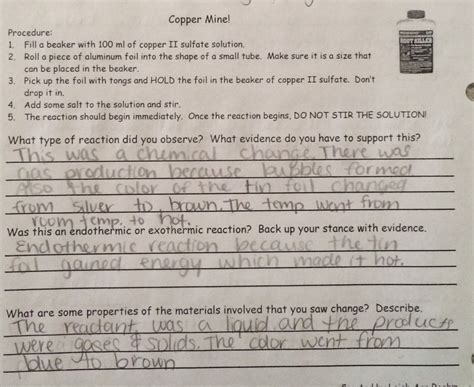 Copper Mine!
Procedure:
1. Fill a beaker with 100 ml of copper II sulfate solution.
2. Roll a piece of aluminum foil into the shape of a small tube. Make sure it is a size that
can be placed in the beaker.
3. Pick up the foil with tongs and HOLD the foil in the beaker of copper II sulfate. Don't
drop it in.
4. Add some salt to the solution and stir.
5. The reaction should begin immediately. Once the reaction begins, DO NOT STIR THE SOLUTION!
ROOT KILLER
What type of reaction did you observe? What evidence do you have to support this?
This was a chemical change. There was
gas production because bubbles formed
Also the color of the tin foil changed
from silver to brown. The temp went from
room temp. to hot.
Was this an endothermic or exothermic reaction? Back up your stance with evidence.
Endothermic reaction because the tin
foil gained energy which made it hot.
What are some properties of the materials involved that you saw change? Describe.
The reactant was a liquid and the products
were gases & solids. The color went from
blue to brown